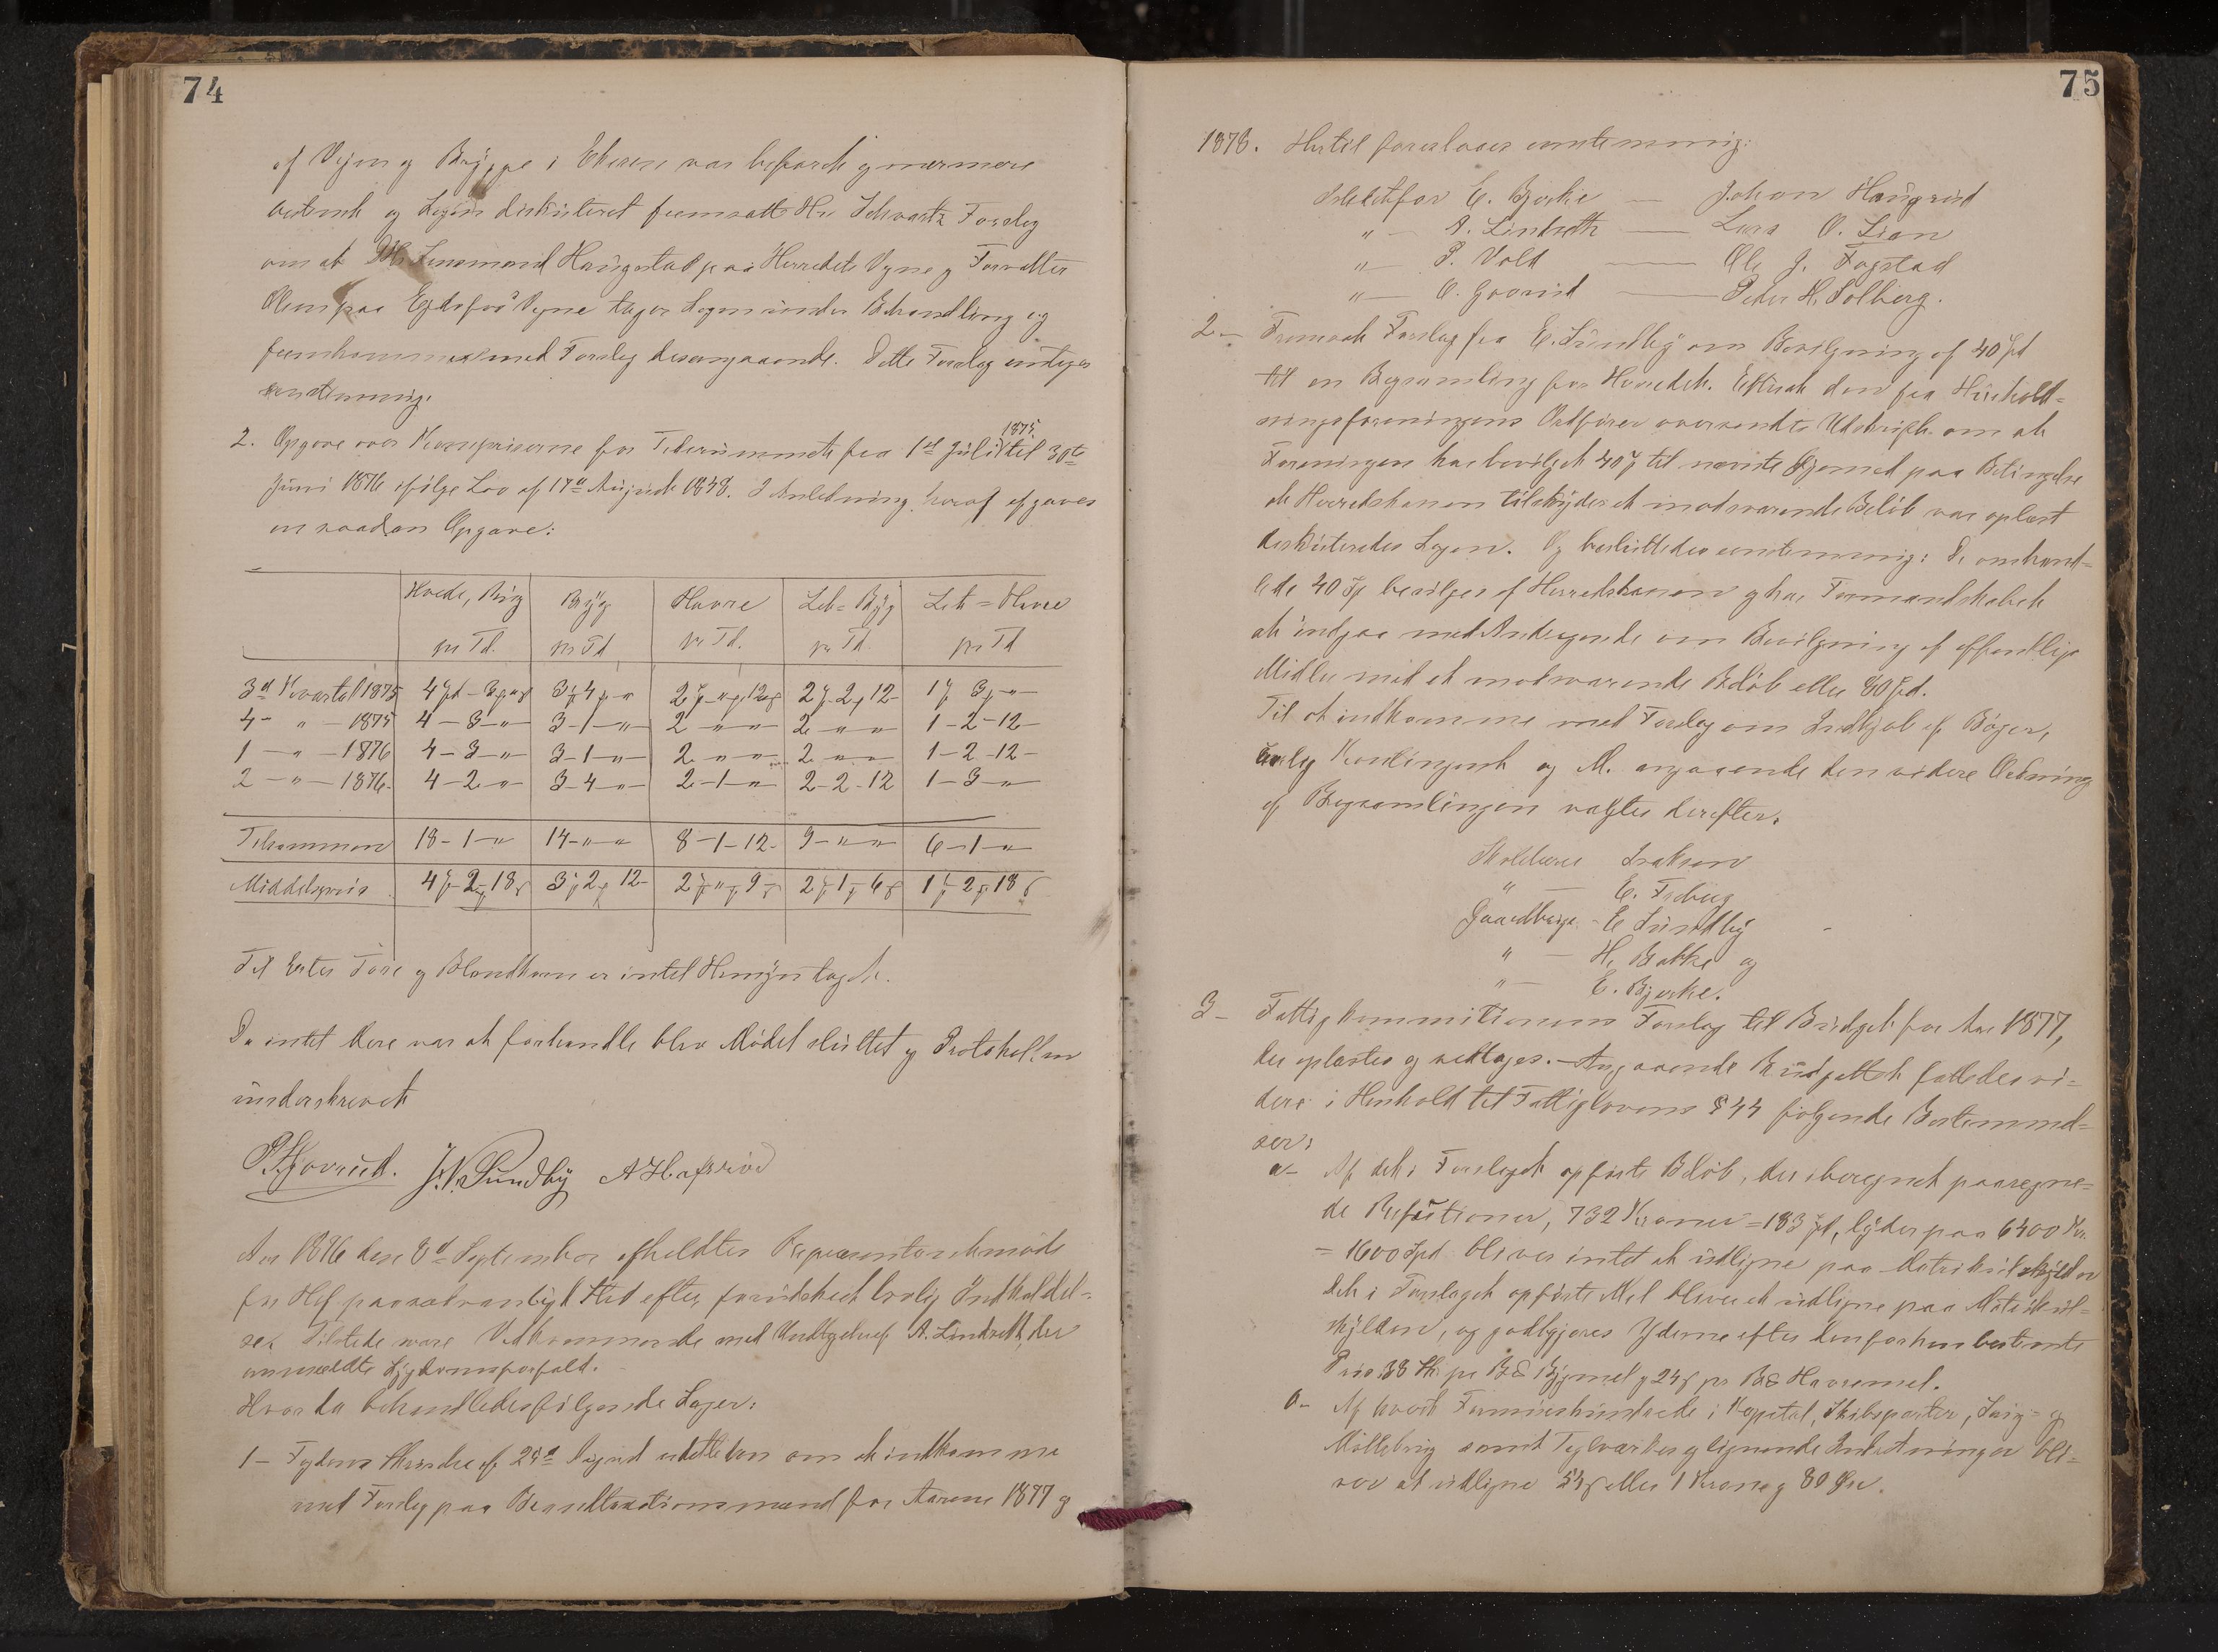 74
af Vejen og Brygge i Ekeren var besørget og nærmere
bestemt og Sagen diskuteret fremsatte Hr Schwartz Forslag
om at Lensmand Haugestad paa Herredets Vegne og Forvalter
paa Egdefos Vegne tager Sagen under Behandling og
fremkommer med Forslag desangaaende. Dette Forslag antoges
enstemmig.
2. Opgave over Kornpriserne for Tidsrummet fra 1st Juli 1875 til 30te
Juni 1876 ifølge Lov af 17de August 1848. I Anledning heraf afgaves
en saadan Opgave:
Hvede, Rug Byg Havre Let-Byg Let-Havre
pr Td. pr Td pr Td. pr Td. pr Td
3d Kvartal 1875 4 Spd - 3 - " 3 - 4 - " 2 - " - 12 2 - 2 - 12 - 1 - 3 - "
4 - " - 1875 4 - 3 - " 3 - 1 - " 2 - " - " 2 - " - " 1 - 2 - 12 -
1 - " - 1876 4 - 3 - " 3 - 1 - " 2 - " - " 2 - " - " 1 - 2 - 12 -
2 - " - 1876. 4 - 2 - " 3 - 4 - " 2 - 1 - " 2 - 2 - 12 1 - 3 - "
Tilsammen 18 - 1 - " 14 - " - " 8 - 1 - 12 - 9 - " - " 6 - 1 - "
Middelpris 4 - 2 - 18 3 - 2 - 12 - 2 - " - 9 2 - 1 - 6 1 - 2 - 18
Til Erter og Blandkorn er intet Hensyn taget.
Da intet mere var at forhandle blev Mødet sluttet og Protokollen
underskrevet
P. Hovrud. J. N. Sundby A Hafsrød
Aar 1876 den 8d September afholdtes Repræsentantskmøde
paa sædvanligt Sted efter forudskeet lovlig Indkaldel-
se. Tilstede vare Vedkommende med Undtagelse af A. Lindseth, der
anmeldte Sygdomsforfald.
Hvor da behandledes følgende Sager:
1 - Fogdens Skrivelse af 24d August om at indkomme
med Forslag paa Brandtaxationsmænd for Aarene 1877 og
75
1878. Hertil foresloges enstemmig:
Istedetfor E. Bjerke - Johan Haugrud
" - A. Lindseth - Lars O. Lian
" - P. Vold - Ole J. Fogstad
" - O. Goverud - Peder H. Solberg.
2 - Fremsat Forslag fra E. Sundby om Bevilgning af 40 Spd
til en Bogsamling for Herredet. Efterat den fra Hushold-
ningsforeningens Ordfører oversendte Udskrift om at
Foreningen har bevilget 40 Sp til nævnte Øjemed paa Betingelse
at Herredskassen tilskyder et modsvarende Beløb var oplæst
diskuteredes Sagen. Og besluttedes enstemmig: De omhand-
lede 40 Sp bevilges af Herredskassen og har Formandskabet
at indgaa med Andragende om Bevilgning af offentlige
Midler med et modsvarende Beløb eller 80 Spd.
Til at indkomme med Forslag om Indkjøb af Bøger,
aarlig Kontingent og M. angaaende den videre Ordning
af Bogsamlingen valgtes derefter:
Skolelærer Isaksen
" - E. Froberg
Gaardbruger - E Sundby
" - H. Bakke og
" - E. Bjerke.
3 - Fattigkommisionens Forslag til Budget for Aar 1877,
der oplæstes og vedtoges. - Angaaende Budgettet fattedes vi-
dere i Henhold til Fattiglovens § 44 følgende Bestemmel-
ser:
a - Af det i Forslaget opførte Beløb, der iberegnet paaregne-
de Refusioner, 732 Kroner = 183 Spd, lyder paa 6400 Kr.
= 1600 Spd bliver intet at udligne paa Matrikulskylden
det i Forslaget opførte Mel bliver at udligne paa Matrikul-
skylden, og godtgjøres Yderne efter den forhen bestemte
Pris 38 Sk pr B℔ Bygmel og 24 pr B℔ Havremel.
b - Af hvert Formueshundrede i Kapital, Skibsparter, Sag- og
Møllebrug samt Teglværker og lignende Indretninger bli-
ver at udligne 54 eller 1 Krone 80 Øre.